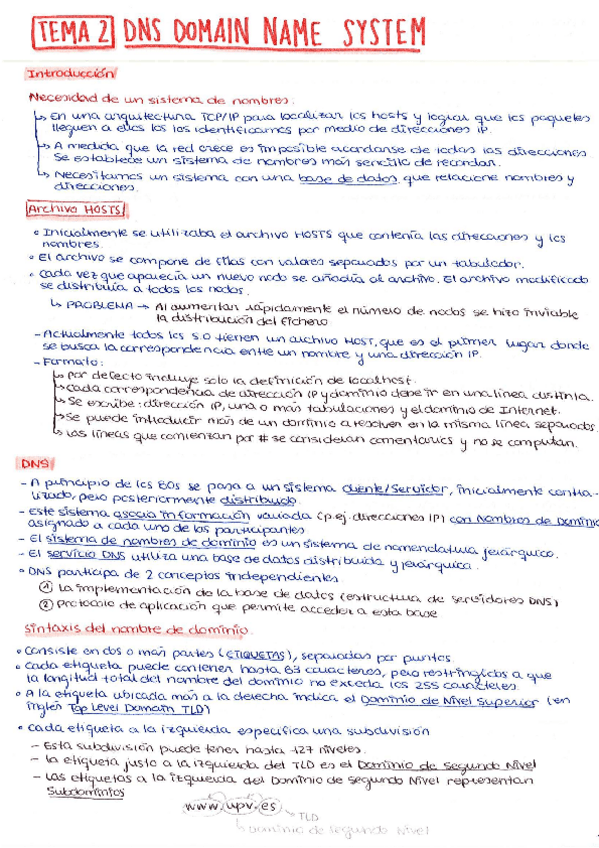 TEMA 2 DNS DOMAIN NAME SYSTEM
Introducción
Necesidad de un sistema de nombres.
↳ En una arquitectura TCP/IP para localizar los hosts y lograr que los paquetes
lleguen a ellos los los identificamos por medio de direcciones IP.
↳ A medida que la red crece es imposible acordarse de todas las direcciones
Se establece un sistema de nombres más sencillo de recordar.
↳ Necesitamos un sistema con una base de datos que relacione nombres y
direcciones.
Archivo HOSTS
• Inicialmente se utilizaba el archivo HOSTS que contenía las direcciones y los
nombres.
• El archivo se compone de filas con valores separados por un tabulador.
• Cada vez que aparecía un nuevo nodo se añadía al archivo. El archivo modificado
se distribuía a todos los nodos.
↳ PROBLEMA → Al aumentar rápidamente el número de nodos se hizo inviable
la distribución del fichero
- Actualmente todos los S.O tienen un archivo HOST, que es el primer lugar donde
se busca la correspondencia entre un nombre y una dirección IP.
- Formato:
↳ Por defecto incluye solo la definición de localhost.
↳ Cada correspondencia de dirección IP y dominio debe ir en una línea distinta.
↳ Se escribe: dirección IP, una o más tabulaciones y el dominio de Internet.
↳ Se puede introducir más de un dominio a resolver en la misma línea separados.
↳ Las líneas que comienzan por # se consideran comentarios y no se computan.
DNS
- A principio de los 80s se pasa a un sistema cliente/servidor, inicialmente centra-
lizado, pero posteriormente distribuido.
- Este sistema asocia información variada (p.ej. direcciones IP) con Nombres de Dominio
asignado a cada uno de los participantes
- El sistema de nombres de dominio es un sistema de nomenclatura jerárquico.
- El servicio DNS utiliza una base de datos distribuida y jerárquica.
• DNS participa de 2 conceptos independientes
① La implementación de la base de datos (estructura de servidores DNS)
② Protocolo de aplicación que permite acceder a esta base
Sintaxis del nombre de dominio.
• Consiste en dos o más partes (ETIQUETAS), separadas por puntos.
• Cada etiqueta puede contener hasta 63 caracteres, pero restringidos a que
la longitud total del nombre del dominio no exceda los 255 caracteres.
• A la etiqueta ubicada más a la derecha indica el Dominio de Nivel Superior (en
inglés Top Level Domain TLD)
• Cada etiqueta a la izquierda especifica una subdivisión
- Esta subdivisión puede tener hasta 127 niveles.
- la etiqueta justo a la izquierda del TLD es el Dominio de segundo Nivel
- Las etiquetas a la izquierda del Dominio de segundo Nivel representan
Subdominios
www.upv.es
→ TLD
↳ Dominio de segundo Nivel